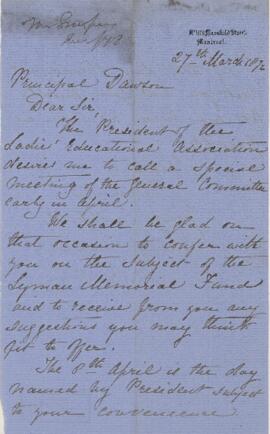 Mansfield Street,
Montreal.
27th March 1872
Principal Dawson
Dear Sir,
The President of the
Ladies' Educational Association
desires me to call a special
meeting of the General Committee
early in April.
We shall be glad on
that occasion to confer with
you on the subject of the
Lyman Memorial Fund
and to receive from you any
suggestions you may think
fit to offer.
The 8th April is the day
named by President subject
to your convenience